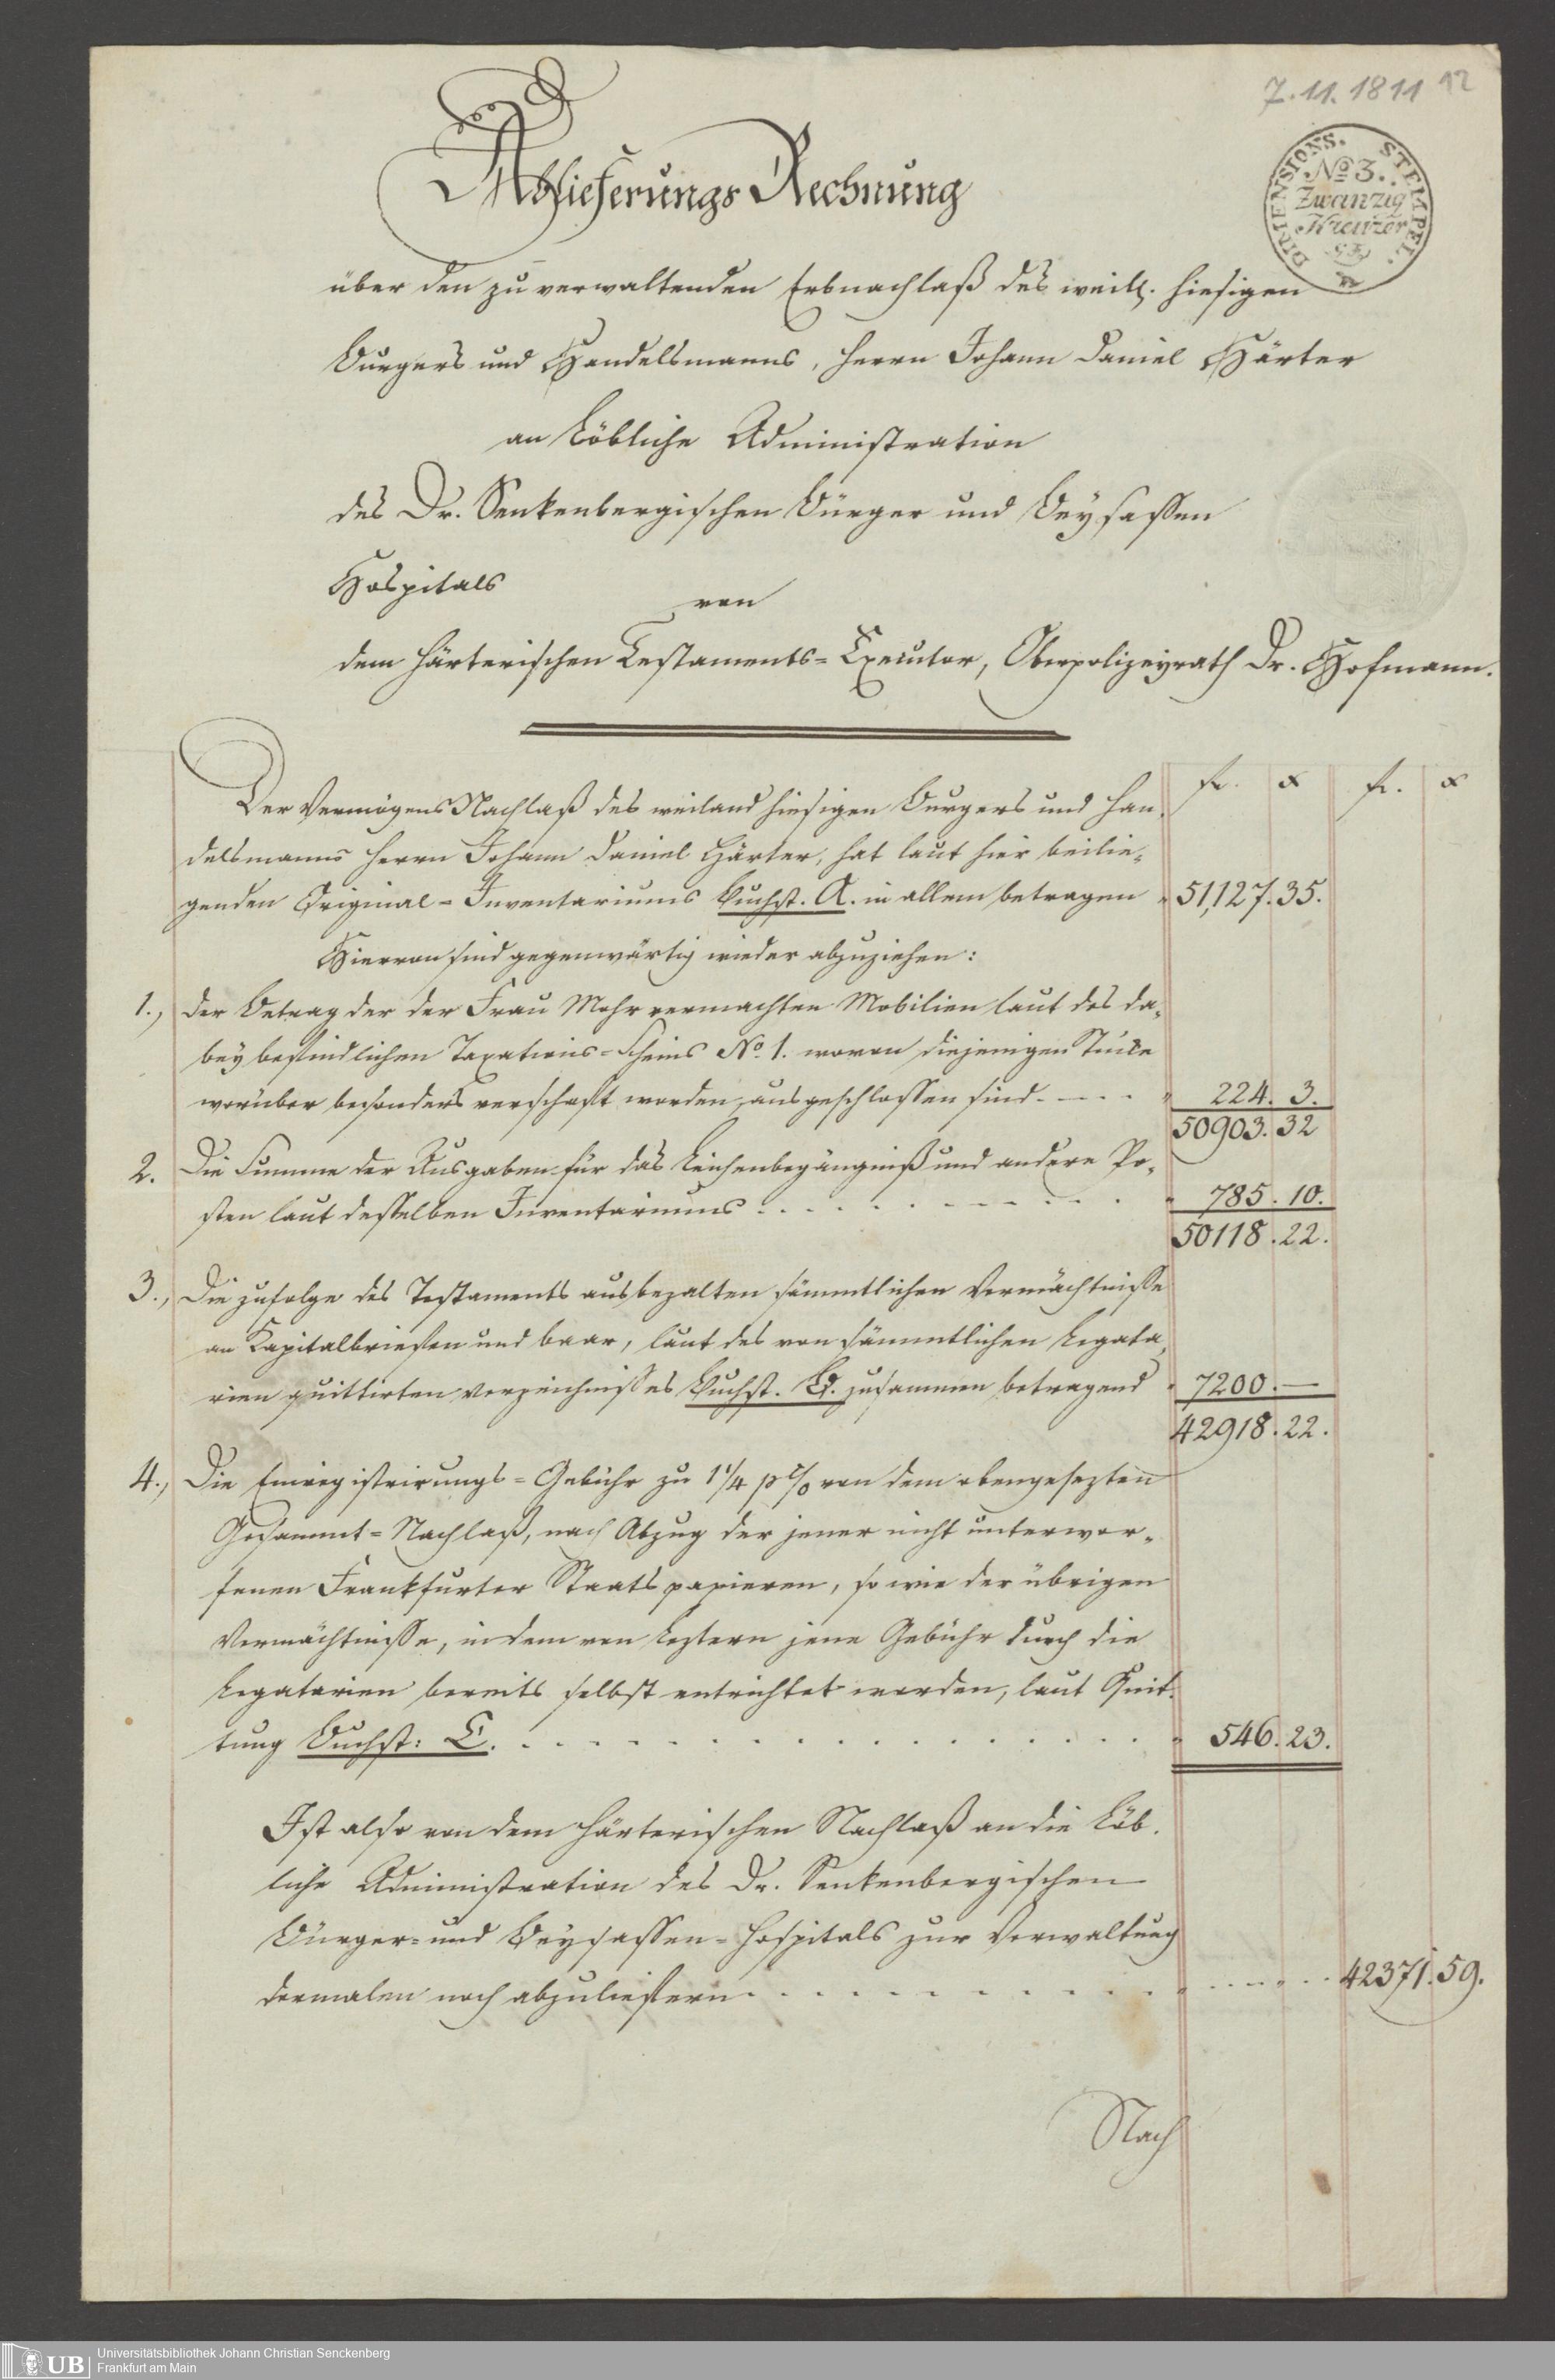 7.11.1811 12
DIMENSIONS. STEMPEL.
No 3.
Zwanzig
Kreuzer
Ablieferungs Rechnung
über den zu verwaltenden Erbnachlaß des weil. hiesigen
Burgers und Handelsmanns, Herrn Johann Daniel Härter
an Löbliche Administration
des Dr. Senkenbergischen Bürger und Beysassen
Hospitals
von
dem Härterischen Testaments=Executor, Oberpolizeyrath Dr. Hofmann.
fr. x fr. x
Der Vermögens Nachlaß des weiland hiesigen Burgers und Han-
delsmanns Herrn Johann Daniel Härter, hat laut hier beilie-
genden Original=Inventariums Buchst. A. in allem betragen 51,127. 35.
Hiervon sind gegenwärtig wieder abzuziehen:
1., Der Betrag der der Frau Mohr vermachten Mobilien laut des da-
bey befindlichen Taxations=Scheins No. 1. wovon diejenigen Stücke
worüber besonders verschafft worden, ausgeschlossen sind. 224. 3.
50903. 32
2. Die Summe der Ausgaben für das Leichenbegängniß und andere Po-
sten laut desselben Inventariums 785. 10.
50118. 22.
3., Die zufolge des Testaments ausbezalten sämmtlichen Vermächtnisse
an Kapitalbriefen und baar, laut des von sämmtlichen Legata-
rien quittirten Verzeichnisses Buchst. B. zusammen betragend 7200. —
42918. 22.
4., Die Einregistrirungs=Gebühr zu 1 1/4 p % von dem obengesezten
Gesammt=Nachlaß, nach Abzug der jener nicht unterwor-
fenen Frankfurter Staatspapieren, so wie der übrigen
Vermächtnisse, indem von leztern jene Gebühr durch die
Legatarien bereits selbst entrichtet worden, laut Quit-
tung Buchst: C. 546. 23.
Ist also von dem Härterischen Nachlaß an die Löb-
liche Administration des Dr. Senkenbergischen
Bürger= und Beysassen=Hospitals zur Verwaltung
dermalen noch abzuliefern 42371. 59.
Nach
UB
Universitätsbibliothek Johann Christian Senckenberg
Frankfurt am Main